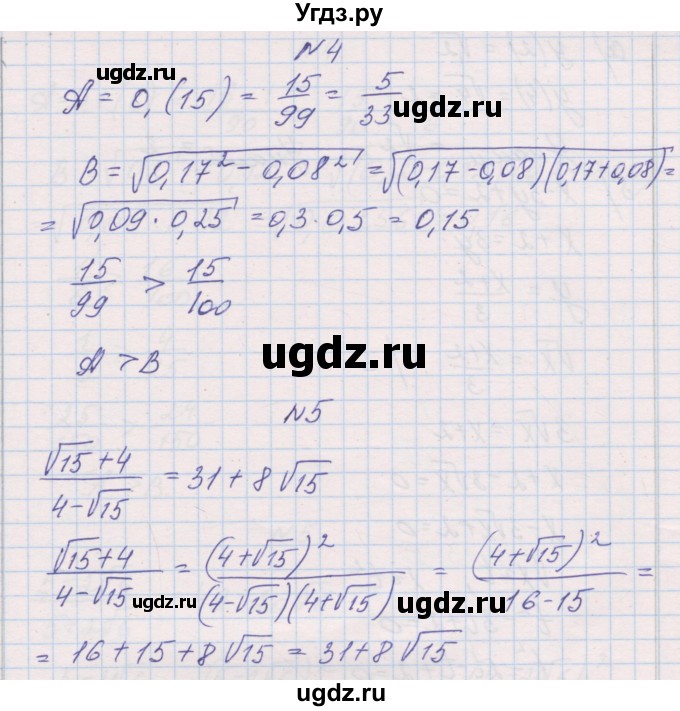 Угдз.ру
№4
A = 0,(15) = 15/99 = 5/33
ugdz.ru
ugdz.ru
B = √(0,17² - 0,08²) = √((0,17 - 0,08)(0,17 + 0,08)) =
= √(0,09 · 0,25) = 0,3 · 0,5 = 0,15
15/99 > 15/100
ugdz.ru
A > B
№5
(√15 + 4)/(4 - √15) = 31 + 8√15
(√15 + 4)/(4 - √15) = (4 + √15)²/((4 - √15)(4 + √15)) = (4 + √15)²/(16 - 15) =
ugdz.ru
ugdz.ru
= 16 + 15 + 8√15 = 31 + 8√15
ugdz.ru